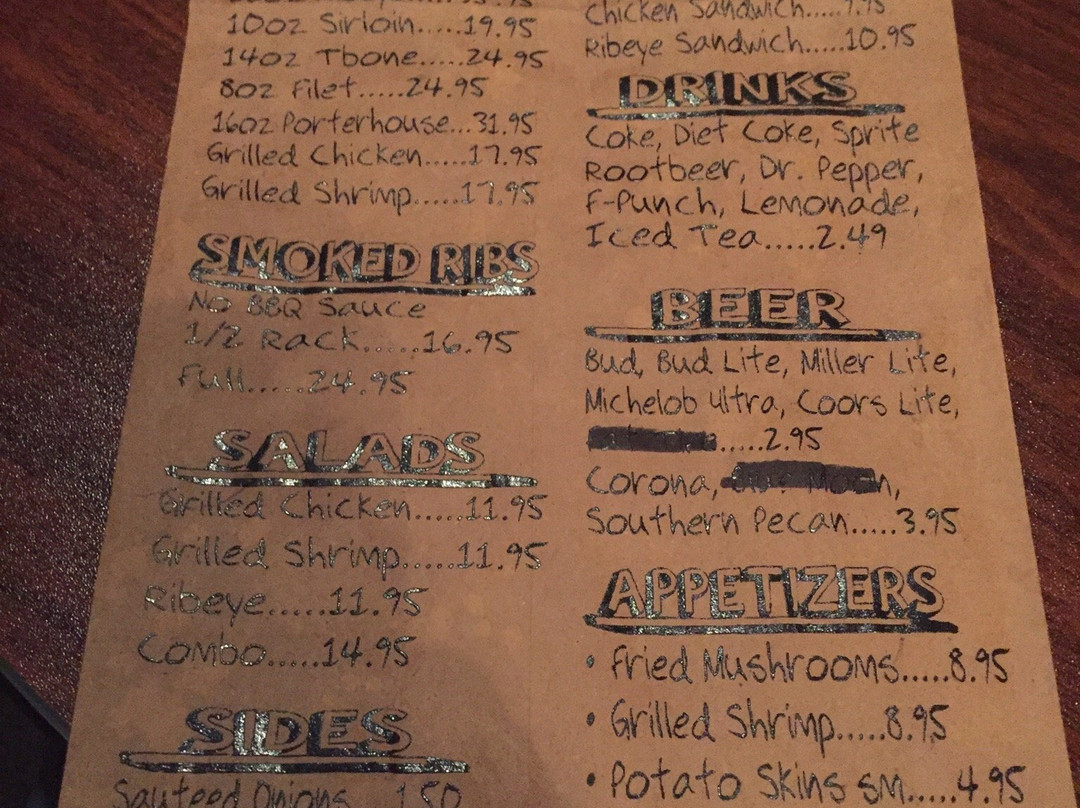 10oz Sirloin.....19.95
14oz Tbone.....24.95
8oz Filet.....24.95
16oz Porterhouse...31.95
Grilled Chicken.....17.95
Grilled Shrimp.....17.95
SMOKED RIBS
No BBQ Sauce
1/2 Rack.....16.95
Full.....24.95
SALADS
Grilled Chicken.....11.95
Grilled Shrimp.....11.95
Ribeye.....11.95
Combo.....14.95
SIDES
Sauteed Onions 1.50
Chicken Sandwich.....9.95
Ribeye Sandwich.....10.95
DRINKS
Coke, Diet Coke, Sprite
Rootbeer, Dr. Pepper,
F-Punch, Lemonade,
Iced Tea.....2.49
BEER
Bud, Bud Lite, Miller Lite,
Michelob Ultra, Coors Lite,
.....2.95
Corona, Moon,
Southern Pecan.....3.95
APPETIZERS
• Fried Mushrooms.....8.95
• Grilled Shrimp.....8.95
• Potato Skins sm.....4.95